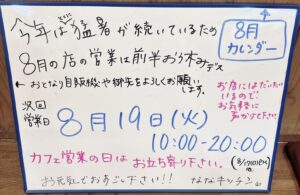 今年は猛暑が続いているため
8月の店の営業は前半お休みデス
← おとなり自販機や
よろしくお願いします。
8月
カレンダー
お店にはだいたい
いるので、
お気軽に
声かけて下さい。
次回
営業日
8月19日(火)
10:00-20:00
カフェ営業の日は お立ち寄り下さい。
お元気でおすごし下さい!!
ななキッチン